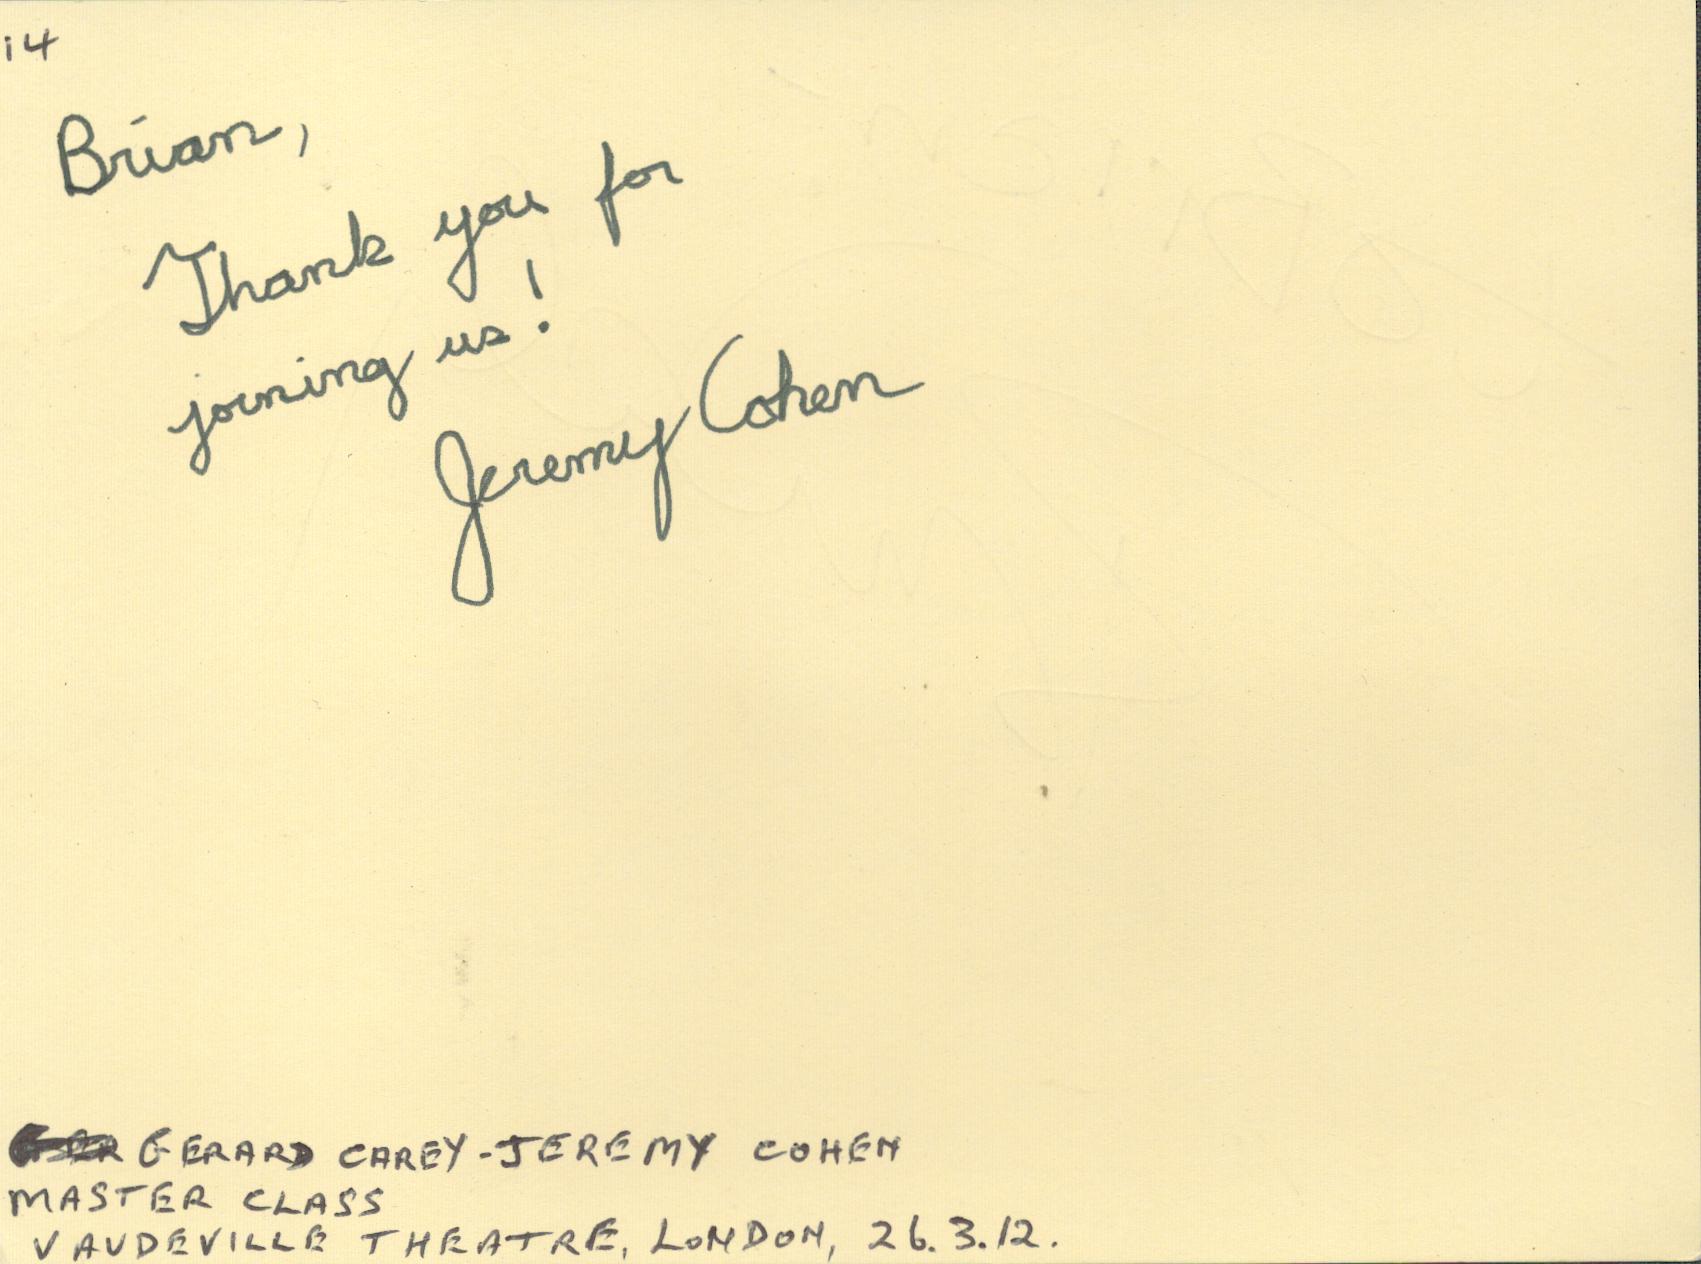 i4
Brian,
Thank you for
joining us!
Jeremy Cohen
GERARD CAREY-JEREMY COHEN
MASTER CLASS
VAUDEVILLE THEATRE, LONDON, 26.3.12.